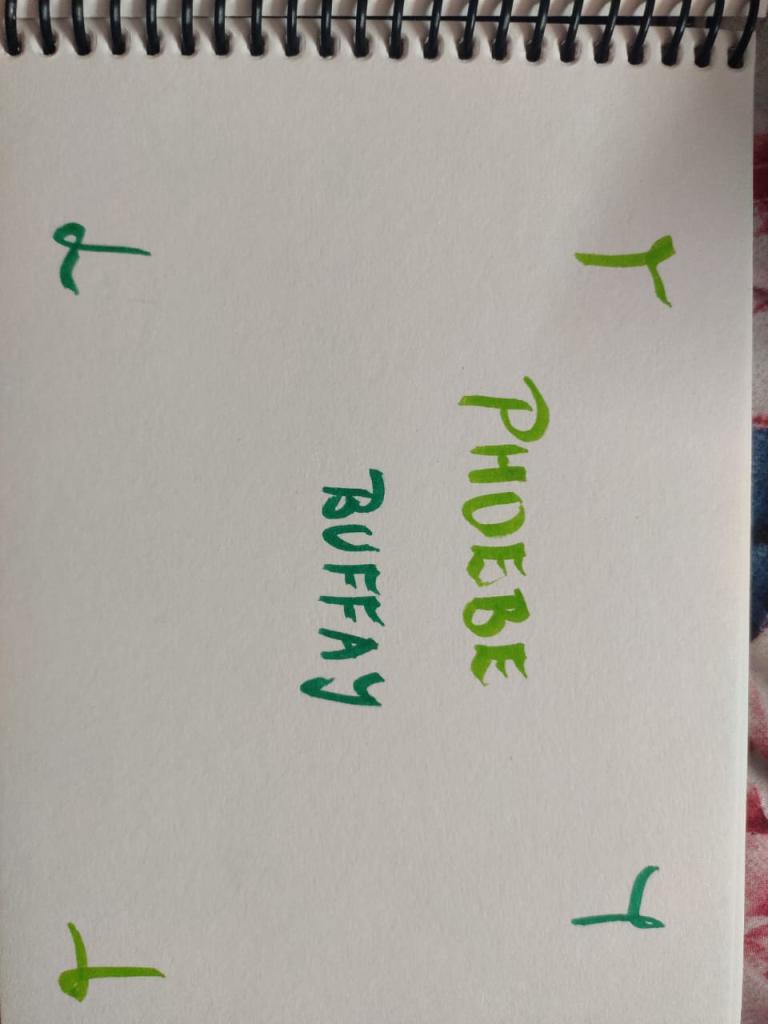 PHOEBE
BUFFAY